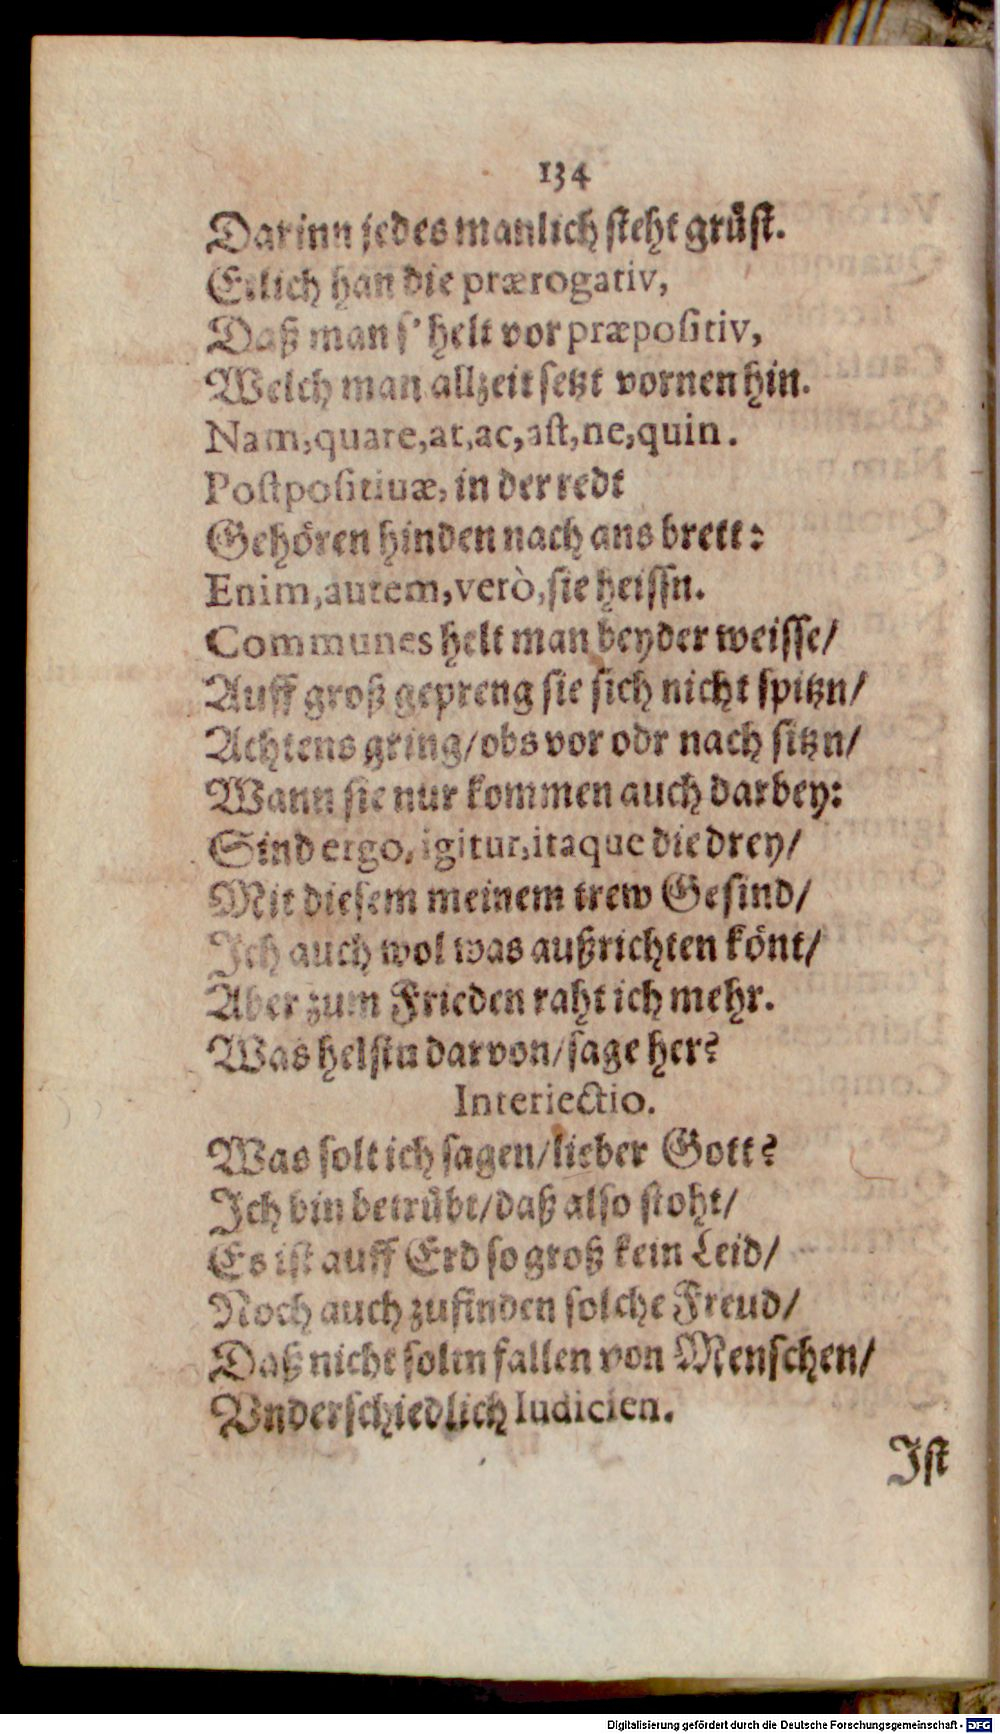 134
Darinn jedes manlich steht grüst.
Etlich han die prærogativ,
Daß man s' helt vor præpositiv,
Welch man allzeit setzt vornen hin.
Nam, quare, at, ac, ast, ne, quin.
Postpositivæ, in der redt
Gehören hinden nach ans brett:
Enim, autem, verò, sie heissn.
Communes helt man beyder weisse/
Auff groß gepreng sie sich nicht spitzn/
Achtens gring/ obs vor odr nach sitzn/
Wann sie nur kommen auch darbey:
Sind ergo, igitur, itaque die drey/
Mit diesem meinem trew Gesind/
Ich auch wol was außrichten könt/
Aber zum Frieden raht ich mehr.
Was helstu darvon/ sage her?
Interiectio.
Was solt ich sagen/ lieber Gott?
Ich bin betrübt/ daß also stoht/
Es ist auff Erd so groß kein Leid/
Noch auch zufinden solche Freud/
Daß nicht soltn fallen von Menschen/
Vnderschiedlich Iudicien.
Ist
Digitalisierung gefördert durch die Deutsche Forschungsgemeinschaft - DFG